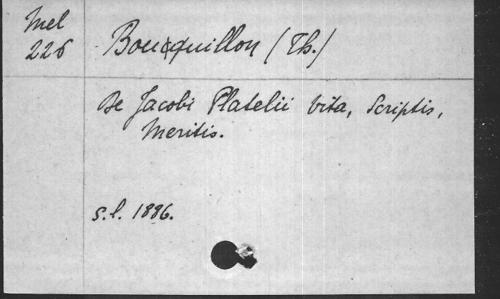 Mel
226
Boucquillon (Th.)
De Jacobi Platelii vita, scriptis,
meritis.
s.l. 1886.